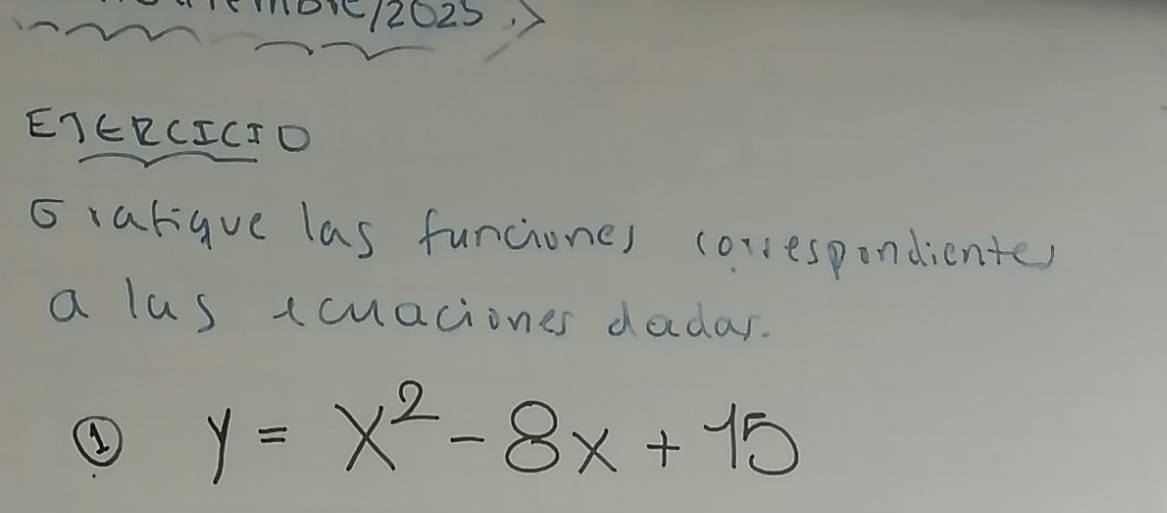 /2025.
EJERCICIO
Grafique las funciones correspondientes
a las ecuaciones dadas.
① y = x² - 8x + 15